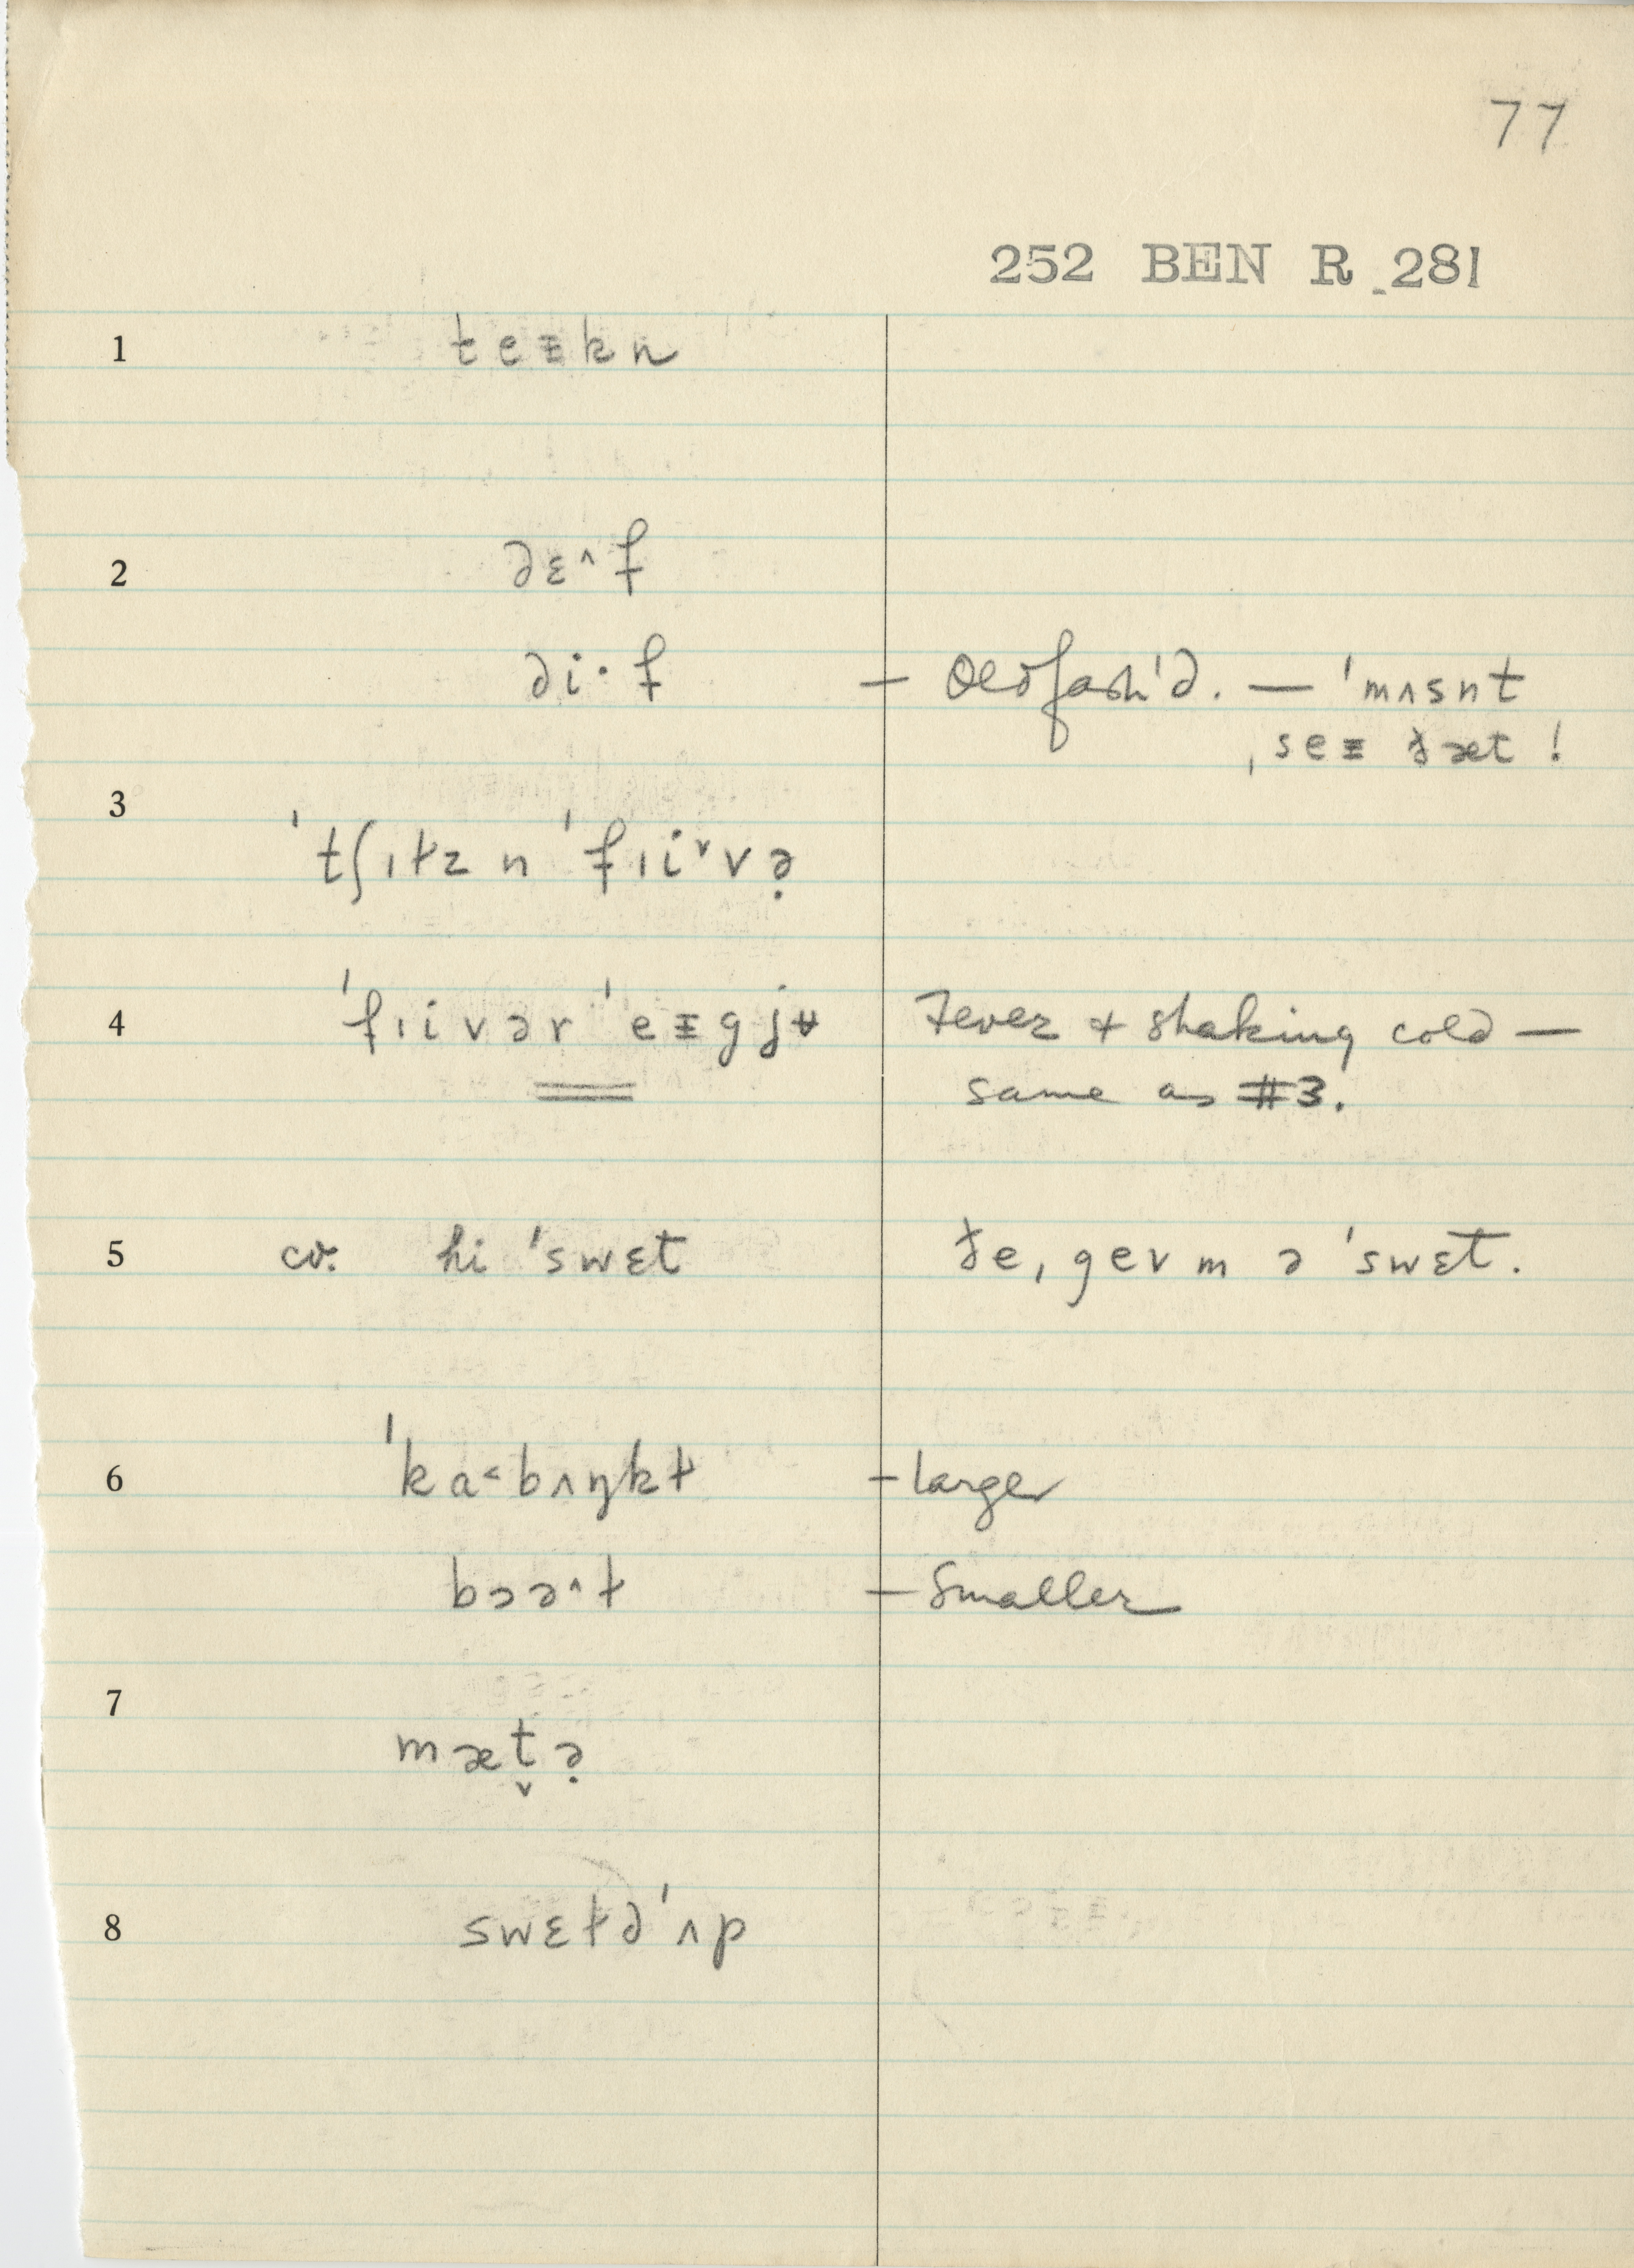 77
252 BEN R 281
1 teᵻkn
2 dɛ^f
di·f – Oldfash'd. — 'mʌsnt
ˌseᵻ ðæt !
3 'tʃɪɫz n 'fɪiᵛvə̣
4 'fɪivər 'eᵻgjʉ Fever + shaking cold —
same as #3.
5 cv. hi 'swɛt ðeˌgev m ə 'swɛt.
6 'ka˂bʌŋkɫ – larger
bɔə^ɫ – Smaller
7 mæt̬ə̣
8 swɛɫd'ʌp